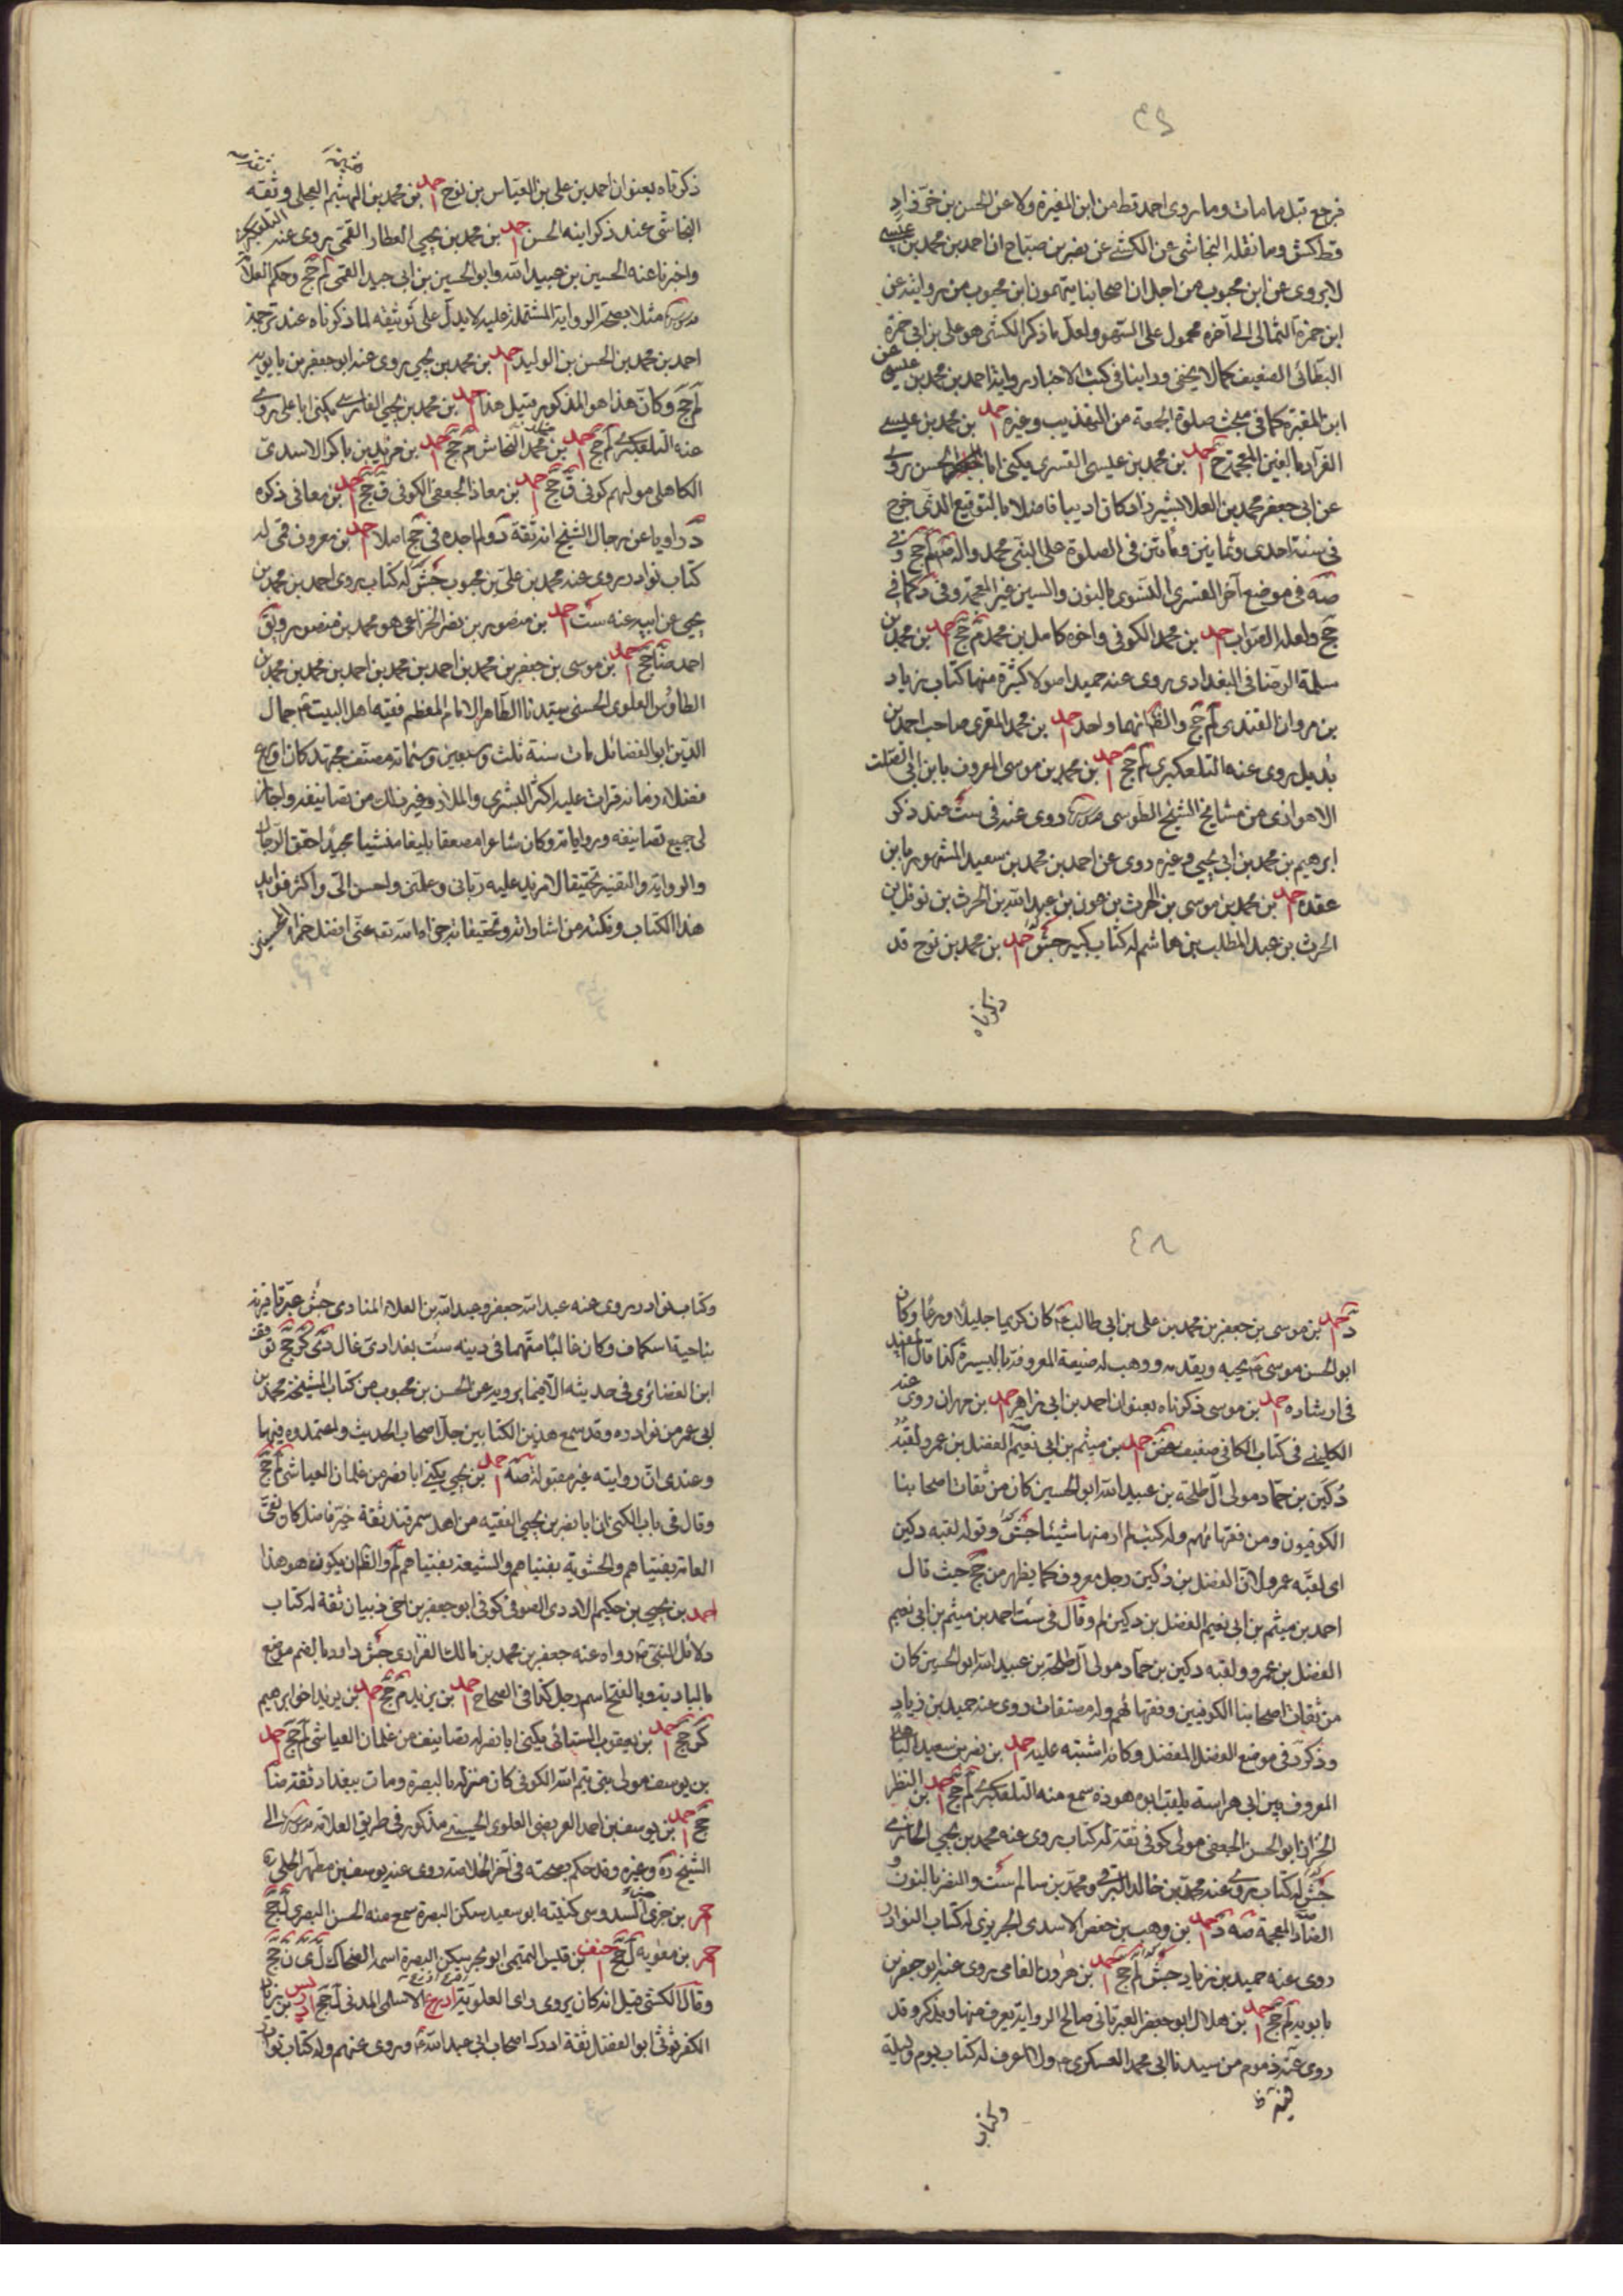 ٤٦
فرجع قبل ما مات وما روى احمد قط من ابن المغيرة ولا عن الحسن بن خرزاد
قط كش وما نقله النجاشي عن الكشي عن نصر بن صباح ان احمد بن محمد بن عيسى
لا يروى عن ابن محبوب من اجل ان اصحابنا يتهمون ابن محبوب من روايته عن
ابن حمزة الثمالى الى آخره محمول على السهو ولعل ما ذكر الكشى هو على بن ابى حمزة
البطائى الضعيف كما لا يخفى وراينا فى كتب الاخبار رواية احمد بن محمد بن عيسى عن
ابن المغيرة كما فى مبحث صلوة الجمعة من التهذيب وغيره احمد بن محمد بن عيسى
الغراد بالغين المعجمة احمد بن محمد بن عيسى القسرى يكنى ابا الحسن روى
عن ابى جعفر محمد بن العلا بشيراز وكان اديبا فاضلا بالتوقيع الذى خرج
فى سنة احدى وثمانين ومأتين فى الصلوة على النبى محمد واله لم جخ وفى
صه فى موضع آخر القسرى النسوى بالنون والسين غير المعجمة وفى د كما فى
جخ ولعله الصواب احمد بن محمد الكوفى واخوه كامل بن محمد م جخ احمد بن محمد بن
سلمة الرصافى البغدادى روى عنه حميد اصولا كثيرة منها كتاب زياد
بن مروان القندى لم جخ والظ انهما واحد احمد بن محمد المقرى صاحب احمد بن
بديل روى عنه التلعكبرى لم جخ احمد بن محمد بن موسى المعروف بابن ابى الصلت
الاهوازى من مشايخ الشيخ الطوسى روى عنه فى ست عند ذكر
ابرهيم بن محمد بن ابى يحيى وغيره روى عن احمد بن محمد بن سعيد المشهور بابن
عقده احمد بن محمد بن موسى بن الحرث بن عون بن عبد الله بن الحرث بن نوفل بن
الحرث بن عبد المطلب بن هاشم له كتاب كبير جش احمد بن محمد بن نوح قد
ذكرناه
ذكرناه بعنوان احمد بن على بن العباس بن نوح احمد بن محمد بن الهيثم العجلى وثقه
النجاشى عند ذكر ابنه الحسن احمد بن محمد بن يحيى العطار القمى روى عنه التلعكبرى
واخبرنا عنه الحسين بن عبيد الله وابو الحسين بن ابى جيد القمى لم جخ وحكم العلا
مثلا بصحة الرواية المشتملة عليه لا يدل على توثيقه لما ذكرناه عند ترجمة
احمد بن محمد بن الحسن بن الوليد احمد بن محمد بن يحيى روى عنه ابو جعفر بن بابويه
لم جخ وكان هذا هو المذكور قبيل هذا احمد بن محمد بن يحيى الفارسى يكنى ابا على روى
عنه التلعكبرى لم جخ احمد بن محمد النجاش م جخ احمد بن مزيد بن باكر الاسدى
الكاهلى مولهم كوفى ق جخ احمد بن معاذ الجعفى الكوفى ق جخ احمد بن معافى ذكره
د راويا عن رجال الشيخ انه ثقة كر ولم اجده فى جخ اصلا احمد بن معروف قمى له
كتاب نوادر روى عنه محمد بن على بن محبوب جش له كتاب روى احمد بن محمد بن
يحيى عن ابيه عنه ست احمد بن منصور بن نصر الخزاعى هو محمد بن منصور ويق
احمد ضا جخ احمد بن موسى بن جعفر بن محمد بن احمد بن محمد بن احمد بن محمد بن محمد بن
الطاؤس العلوى الحسنى سيدنا الطاهر الامام المعظم فقيه اهل البيت جمال
الدين ابو الفضائل مات سنة ثلث وسبعين وستمائه مصنف مجتهد كان اورع
فضلاء زمانه قرات عليه اكثر البشرى والملاذ وغير ذلك من تصانيفه واجاز
لى جميع تصانيفه ورواياته وكان شاعرا مصقعا بليغا منشيا مجيدا حقق الرجال
والرواية والتفسير تحقيقا لا مزيد عليه ربانى وعلمنى واحسن الى واكثر فوايد
هذا الكتاب ونكته من اشاراته وتحقيقاته جزاه الله تعه عنى افضل جزاء المحسنين
٤٨
د احمد بن موسى بن جعفر بن محمد بن على بن ابى طالب كان كريما جليلا ورعا وكان
ابو الحسن موسى يحبه ويقدمه ووهب له ضيعة المعروفة باليسيرة كذا قال المفيد
فى ارشاده احمد بن موسى ذكرناه بعنوان احمد بن ابى زاهر احمد بن مهران روى عنه
الكلينى فى كتاب الكافى ضعيف غض احمد بن ميثم بن ابى نعيم الفضل بن عمر ولقبه
دُكَين بن حماد مولى آل طلحة بن عبيد الله ابو الحسين كان من ثقات اصحابنا
الكوفيون ومن فقهائهم وله كتب لم ار منها شيئا جش وقوله لقبه دكين
اى لقبّه عمرو لان الفضل بن دكين رجل معروف كما يظهر من جخ حيث قال
احمد بن ميثم بن ابى نعيم الفضل بن دكين لم وقال فى ست احمد بن ميثم بن ابى نعيم
الفضل بن عمرو ولقبه دكين بن حماد مولى آل طلحة بن عبيد الله ابو الحسين كان
من ثقات اصحابنا الكوفيين وفقهائهم وله مصنفات روى عنه حميد بن زياد
وذكر د فى موضع الفضل المفضل وكانه اشتبه عليه احمد بن نصر بن سعيد الباهلى
المعروف بابن ابى هراسة يلقب ابوه هوذة سمع منه التلعكبرى لم جخ احمد بن النظر
الخزاز ابو الحسن الجعفى مولى كوفى ثقة له كتاب روى عنه محمد بن يحيى الخازن
جش له كتاب روى عنه محمد بن خالد البرقى ومحمد بن سالم ست والنضر بالنون و
الضاد المعجمة صه د احمد بن وهب بن حفص الاسدى الجريرى له كتاب النوادر
روى عنه حميد بن زياد جش لم جخ احمد بن هرون الفامى روى عنه ابو جعفر بن
بابويه لم جخ احمد بن هلال ابو جعفر العبرتانى صالح الرواية يعرف منها وينكر وقد
روى فيه ذموم من سيدنا ابى محمد العسكرى ولا اعرف له كتاب يوم وليلة
وكتاب
وكتاب نوادر روى عنه عبد الله جعفر وعبد الله بن العلاء المنادى جش عبرتا قرية
بناحية اسكاف وكان غاليا متهما فى دينه ست بغدادى غال دى كر جخ توقف
ابن الغضائرى فى حديثه الا فيما يرويه عن الحسن بن محبوب من كتاب المشيخة محمد بن
ابى عمر من نوادره وقد سمع هذين الكتابين جل اصحاب الحديث واعتمدوه فيها
وعندى ان روايته غير مقبولة صه احمد بن يحيى يكنى ابا نصر من غلمان العياشى لم جخ
وقال فى باب الكنى ان ابا نصر بن يحيى الفقيه من اهل سمرقند ثقة خير فاضل كان يفتى
العامة بفتياهم والحشوية بفتياهم والشيعة بفتياهم لم والظ ان يكون هو هذا
احمد بن يحيى بن حكيم الاودى الصوفى كوفى ابو جعفر بن اخى ذبيان ثقة له كتاب
دلائل النبى رواه عنه جعفر بن محمد بن مالك الفزارى جش داود بالضم موضع
بالبادية وبالفتح اسم رجل كذا فى الصحاح احمد بن يزيد م جخ احمد بن يزيد اخو ابرهيم
كر جخ احمد بن يعقوب السنائى يكنى ابا نصر له تصانيف من غلمان العياشى لم جخ احمد
بن يوسف مولى بنى تيم الله الكوفى كان منزله بالبصرة ومات ببغداد ثقة ضا
جخ احمد بن يوسف بن احمد العريضى العلوى الحسينى مذكور فى طريق العلامة الى
الشيخ ره وغيره وقد حكم بصحته فى آخر الخلاصة روى عنه يوسف بن مطهر الحلى
احمر بن جزى السدوسى كنيته ابو سعيد سكن البصرة سمع منه الحسن البصرى ل جخ
احمر بن معويه ل جخ احنف بن قيس التميمى ابو بحر سكن البصرة اسمه الضحاك ل ى ن جخ
وقال الكشى قيل انه كان يروى راى العلوية ادرع الاسلمى المدنى ل جخ ادريس بن زياد
الكفرثوثى ابو الفضل ثقة ادرك اصحاب ابى عبد الله وروى عنهم وله كتاب نوادر